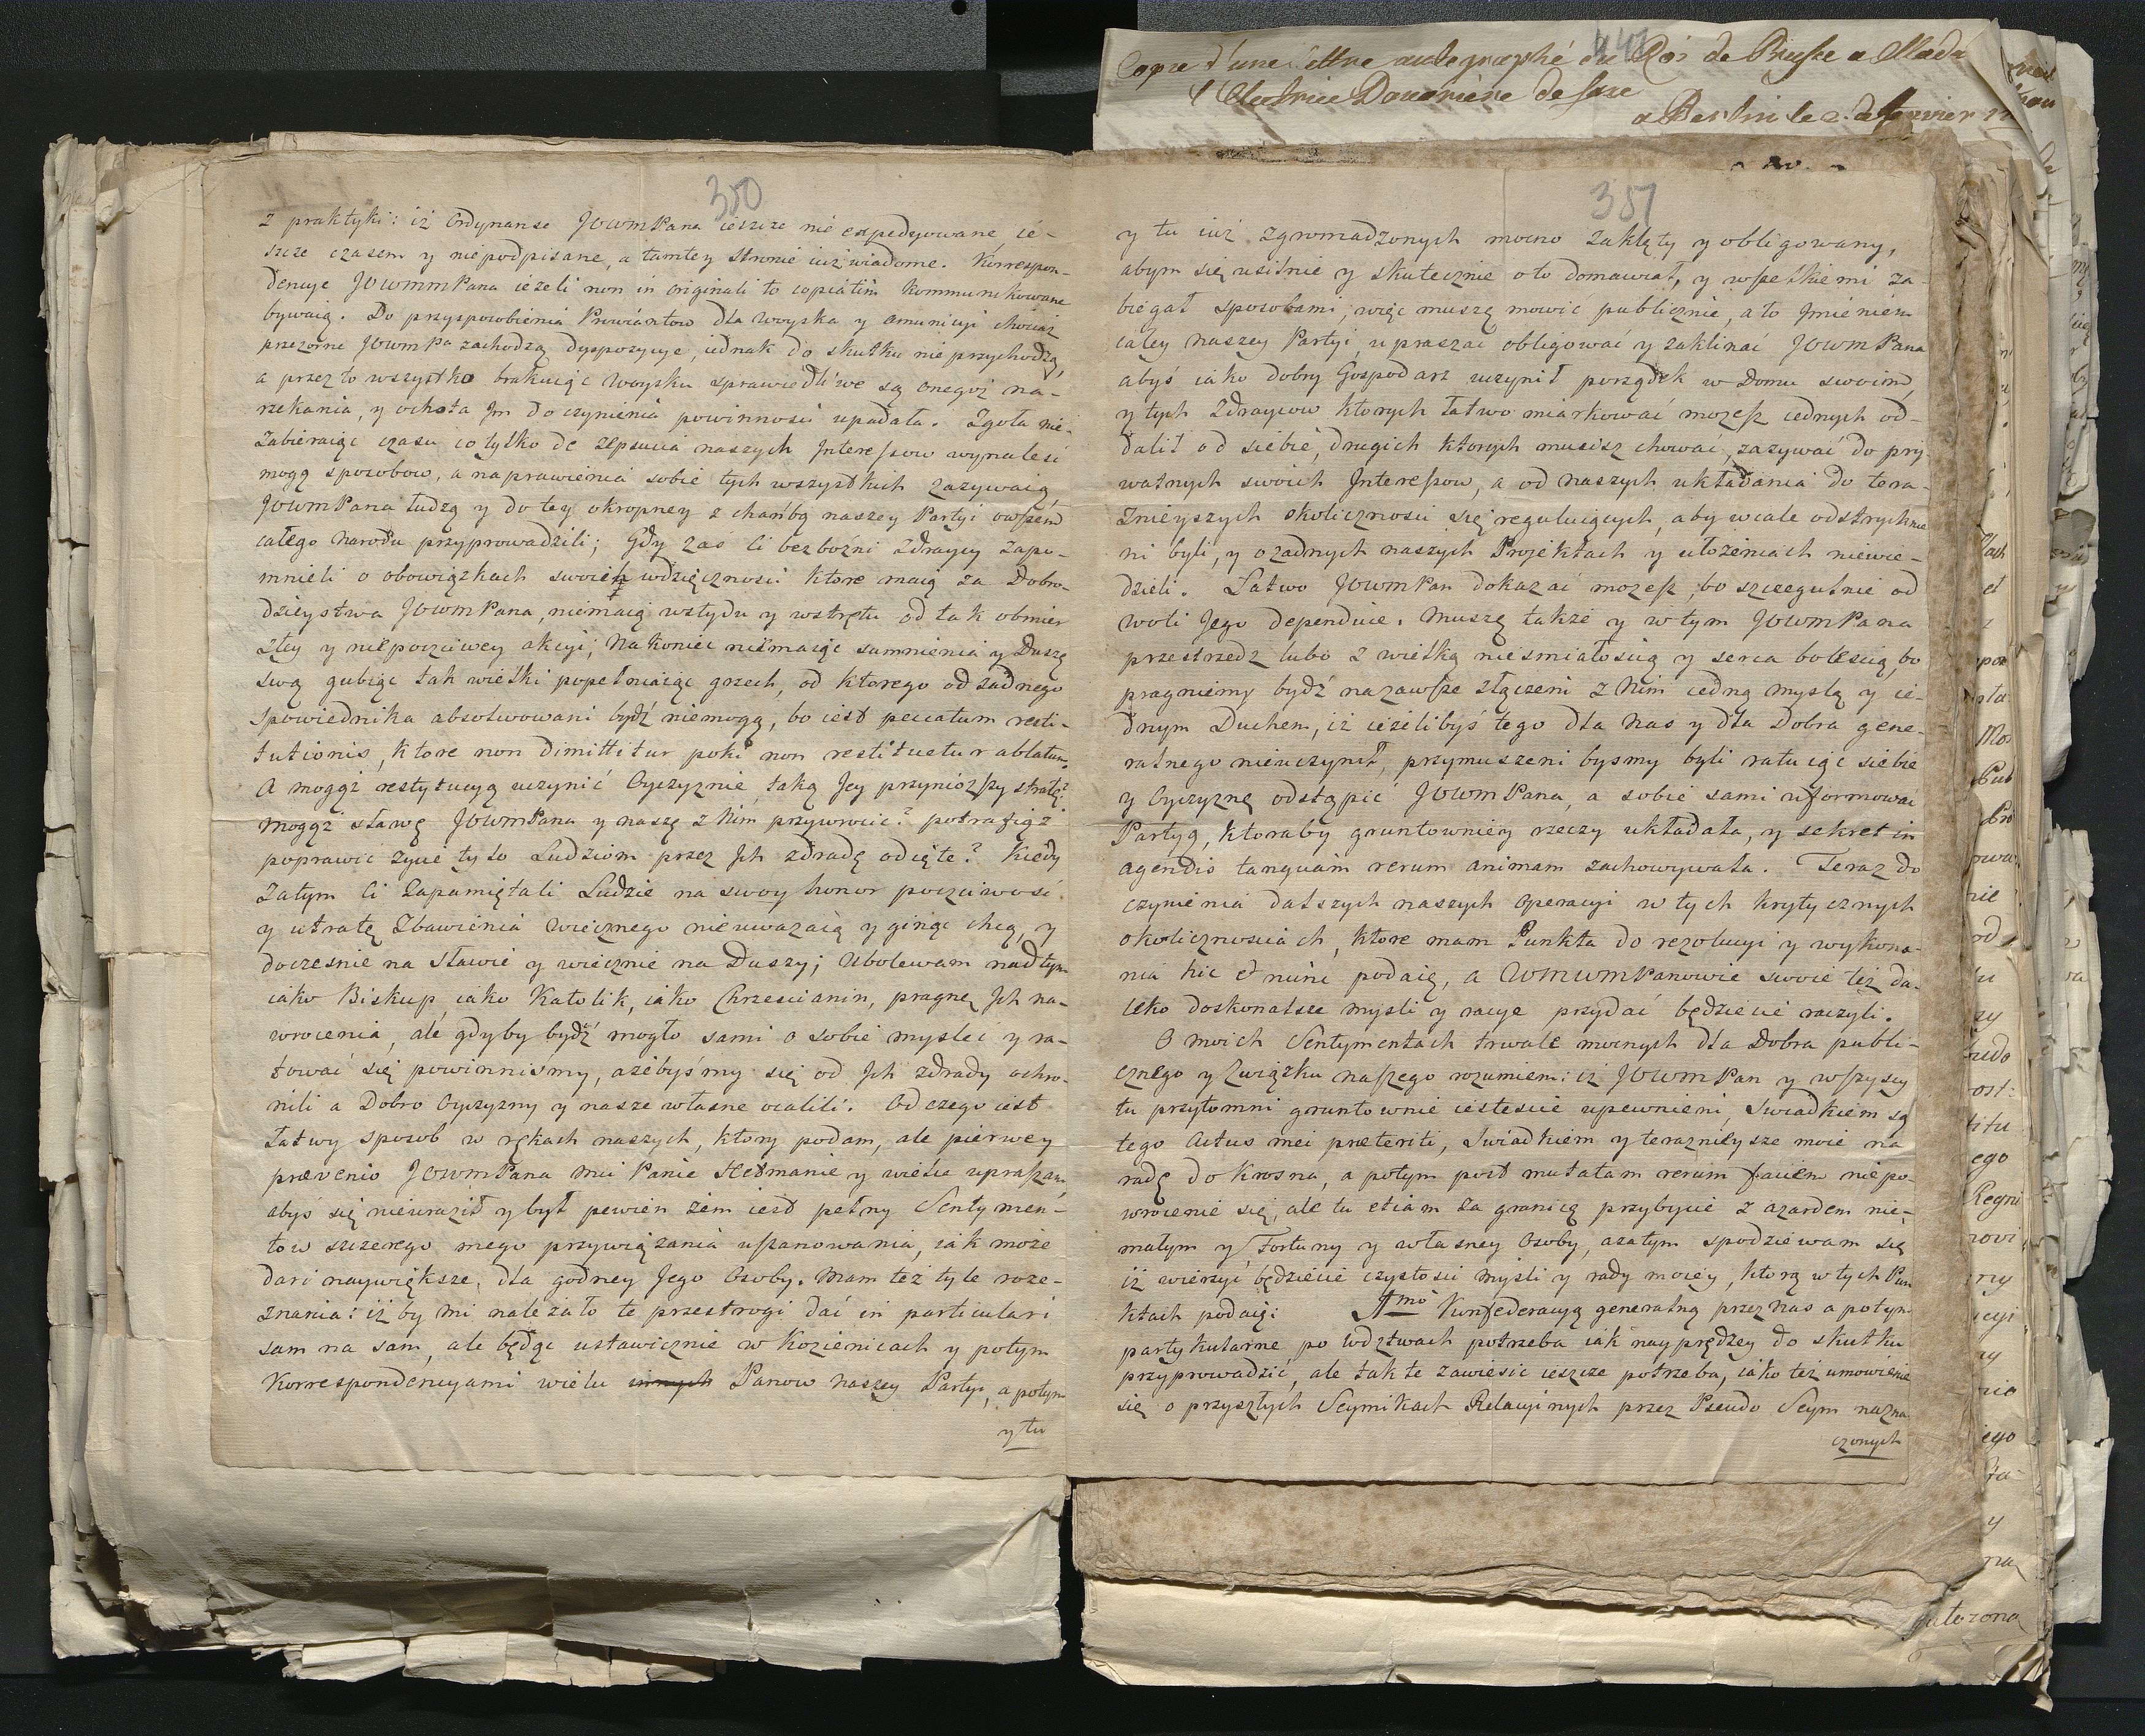 Copie d'une lettre autographé du Roi de Prusse a Mada
l'Electrice Douariere de Saxe
a Berlin le 2 de
350
z praktyki: iż Ordynanse JOWmPana ieszcze nie expedyowane ie-
szcze czasem y niepodpisane, a tamtey stronie iuż wiadome. Korrespon-
dencye JOWmmPana ieżeli non in originali to copiatim kommunikowane
bywaią. Do przysposobienia Prowiantow dla Woyska y amunicyi chociaż
przezorne JOWmPa zachodzą dyspozycye, iednak do skutku nie przychodzą,
a przez to wszystko brakuiąc Woysku sprawiedliwe są onegoż na-
rzekania, y ochota Im do czynienia powinnosci upadała. Zgoła nie-
zabieraiąc czasu co tylko do zepsucia naszych Interessow wynalesć
mogą sposobow, a naprawienia sobie tych wszystkich zazywaią,
JOWmPana łudzą y do tey okropney z chańbą naszey Partyi owszem
całego Narodu przyprowadzili; Gdy zaś Ci bezbożni Zdraycy zapo-
mnieli o obowiązkach swoich wdzięcznosci ktore maią za Dobro-
dzieystwa JOWmPana, niemaią wstydu y wstrętu od tak obmier
złey y niepoczciwey akcyi; Nakoniec niemaiąc sumnienia y Duszę
swą gubiąc tak wielki popełniaiąc grzech, od ktorego od żadnego
Spowiednika absolwowani bydź niemogą, bo iest peccatum resti-
tutionis, ktore non dimittitur poki non restituetur ablatum.
A mogąż restytucyą uczynić Oyczyznie, taką Jey przyniozszy stratę?
mogąż sławę JOWmPana y naszę z Nim przywrocić? potrafiąż
poprawić życie tylo Ludziom przez Ich zdradę odięte? Kiedy
zatym Ci Zapamiętali Ludzie na swoy honor poczciwość
y utratę Zbawienia Wiecznego nieuważaią y ginąć chcą, y
doczesnie na Sławie y wiecznie na Duszy; Ubolewam nad tym
iako Biskup, iako Katolik, iako Chrzescianin, pragnę Ich na-
wrocenia, ale gdyby bydź mogło sami o sobie mysleć y ra-
tować się powinnismy, ażebyśmy się od Ich zdrady ochro-
nili a Dobro Oyczyzny y nasze własne ocalili. Od czego iest
łatwy sposob w rękach naszych, ktory podam, ale pierwey
prævenio JOWmPana Mci Panie Hetmanie y wielce upraszam,
abyś się nieuraził y był pewien żem iest pełny Sentymen-
tow szczerego mego przywiązania uszanowania, iak może
dari naywiększe, dla godney Jego Osoby. Mam też tyle roze-
znania: iż by mi należało te przestrogi dać in particulari
sam na sam, ale będąc ustawicznie w Kozienicach y potym
Korrespondencyami wielu innych Panow naszey Partyi, a potym
y tu
351
y tu iuż zgromadzonych mocno zaklęty y obligowany,
abym się usilnie y skutecznie o to domawiał, y wszelkiemi za-
biegał sposobami; więc muszę mowić publicznie, a to Imieniem
całey naszey Partyi, upraszać obligować y zaklinać JOWmPana
abyś iako dobry Gospodarz uczynił porządek w Domu swoim,
y tych Zdraycow ktorych łatwo miarkować możesz iednych od-
dalił od siebie, drugich ktorych musisz chować, zazywać do pry-
watnych swoich Interessow, a od naszych układania do tera-
znieyszych okolicznosci się reguluiących, aby wcale odstrychnie
ni byli, y o żadnych naszych Projektach y ułożeniach niewie-
dzieli. Łatwo JOWmPan dokazać możesz, bo szczegulnie od
woli Jego dependuie. Muszę także y w tym JOWmPana
przestrzedz lubo z wielką niesmiałoscią y serca bolescią, bo
pragniemy bydź nazawsze złączeni z Nim iedną myslą y ie-
dnym Duchem, iż ieżelibyś tego dla Nas y dla Dobra gene-
ralnego nieuczynił, przymuszeni bysmy byli ratuiąc siebie
y Oyczyznę odstąpić JOWmPana, a sobie sami uformować
Partyą, ktoraby gruntowniey rzeczy układała, y sekret in
agendis tanquam rerum animam zachowywała. Teraz do
czynienia dalszych naszych Operacyi w tych krytycznych
okolicznosciach, ktore mam Punkta do rezolucyi y wykona-
nia hic et nunc podaię, a WmWmPanowie swoie też da-
leko doskonalsze mysli y racye przydać będziecie raczyli.
O moich Sentymentach trwale mocnych dla Dobra publi-
cznego y Związku naszego rozumiem: iż JOWmPan y wszyscy
tu przytomni gruntownie iestescie upewnieni, Swiadkiem są
tego Actus mei præteriti, Swiadkiem y teraznieysze moie na
radę do Krosna, a potym post mutatam rerum faciem niepo-
wrocenie się, ale tu etiam za granicę przybycie z azardem nie-
małym y Fortuny y własney Osoby, a zatym spodziewam się
iż wierzyć będziecie czystosci mysli y rady moiey, ktorą w tych Pun
ktach podaię: 1mo Konfederacyą generalną przez nas a potym
partykularne, po Wdztwach potrzeba iak nayprędzey do skutku
przyprowadzić, ale tak te zawiesić ieszcze potrzeba, iako też umowienie
się o przyszłych Seymikach Relacyinych przez Pseudo Seym nazna-
czonych